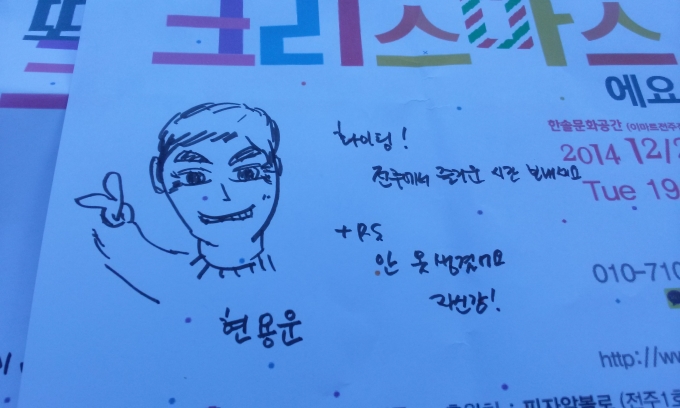 또
크리스마스
에요
한솔문화공간 (이마트전주
2014 12/2
Tue 19
화이팅!
전주에서 즐거운 시간 보내세요
+P.S
안 못생겼어요
자신감!
현용운
010-710
http://ww
피자알볼로 (전주1호